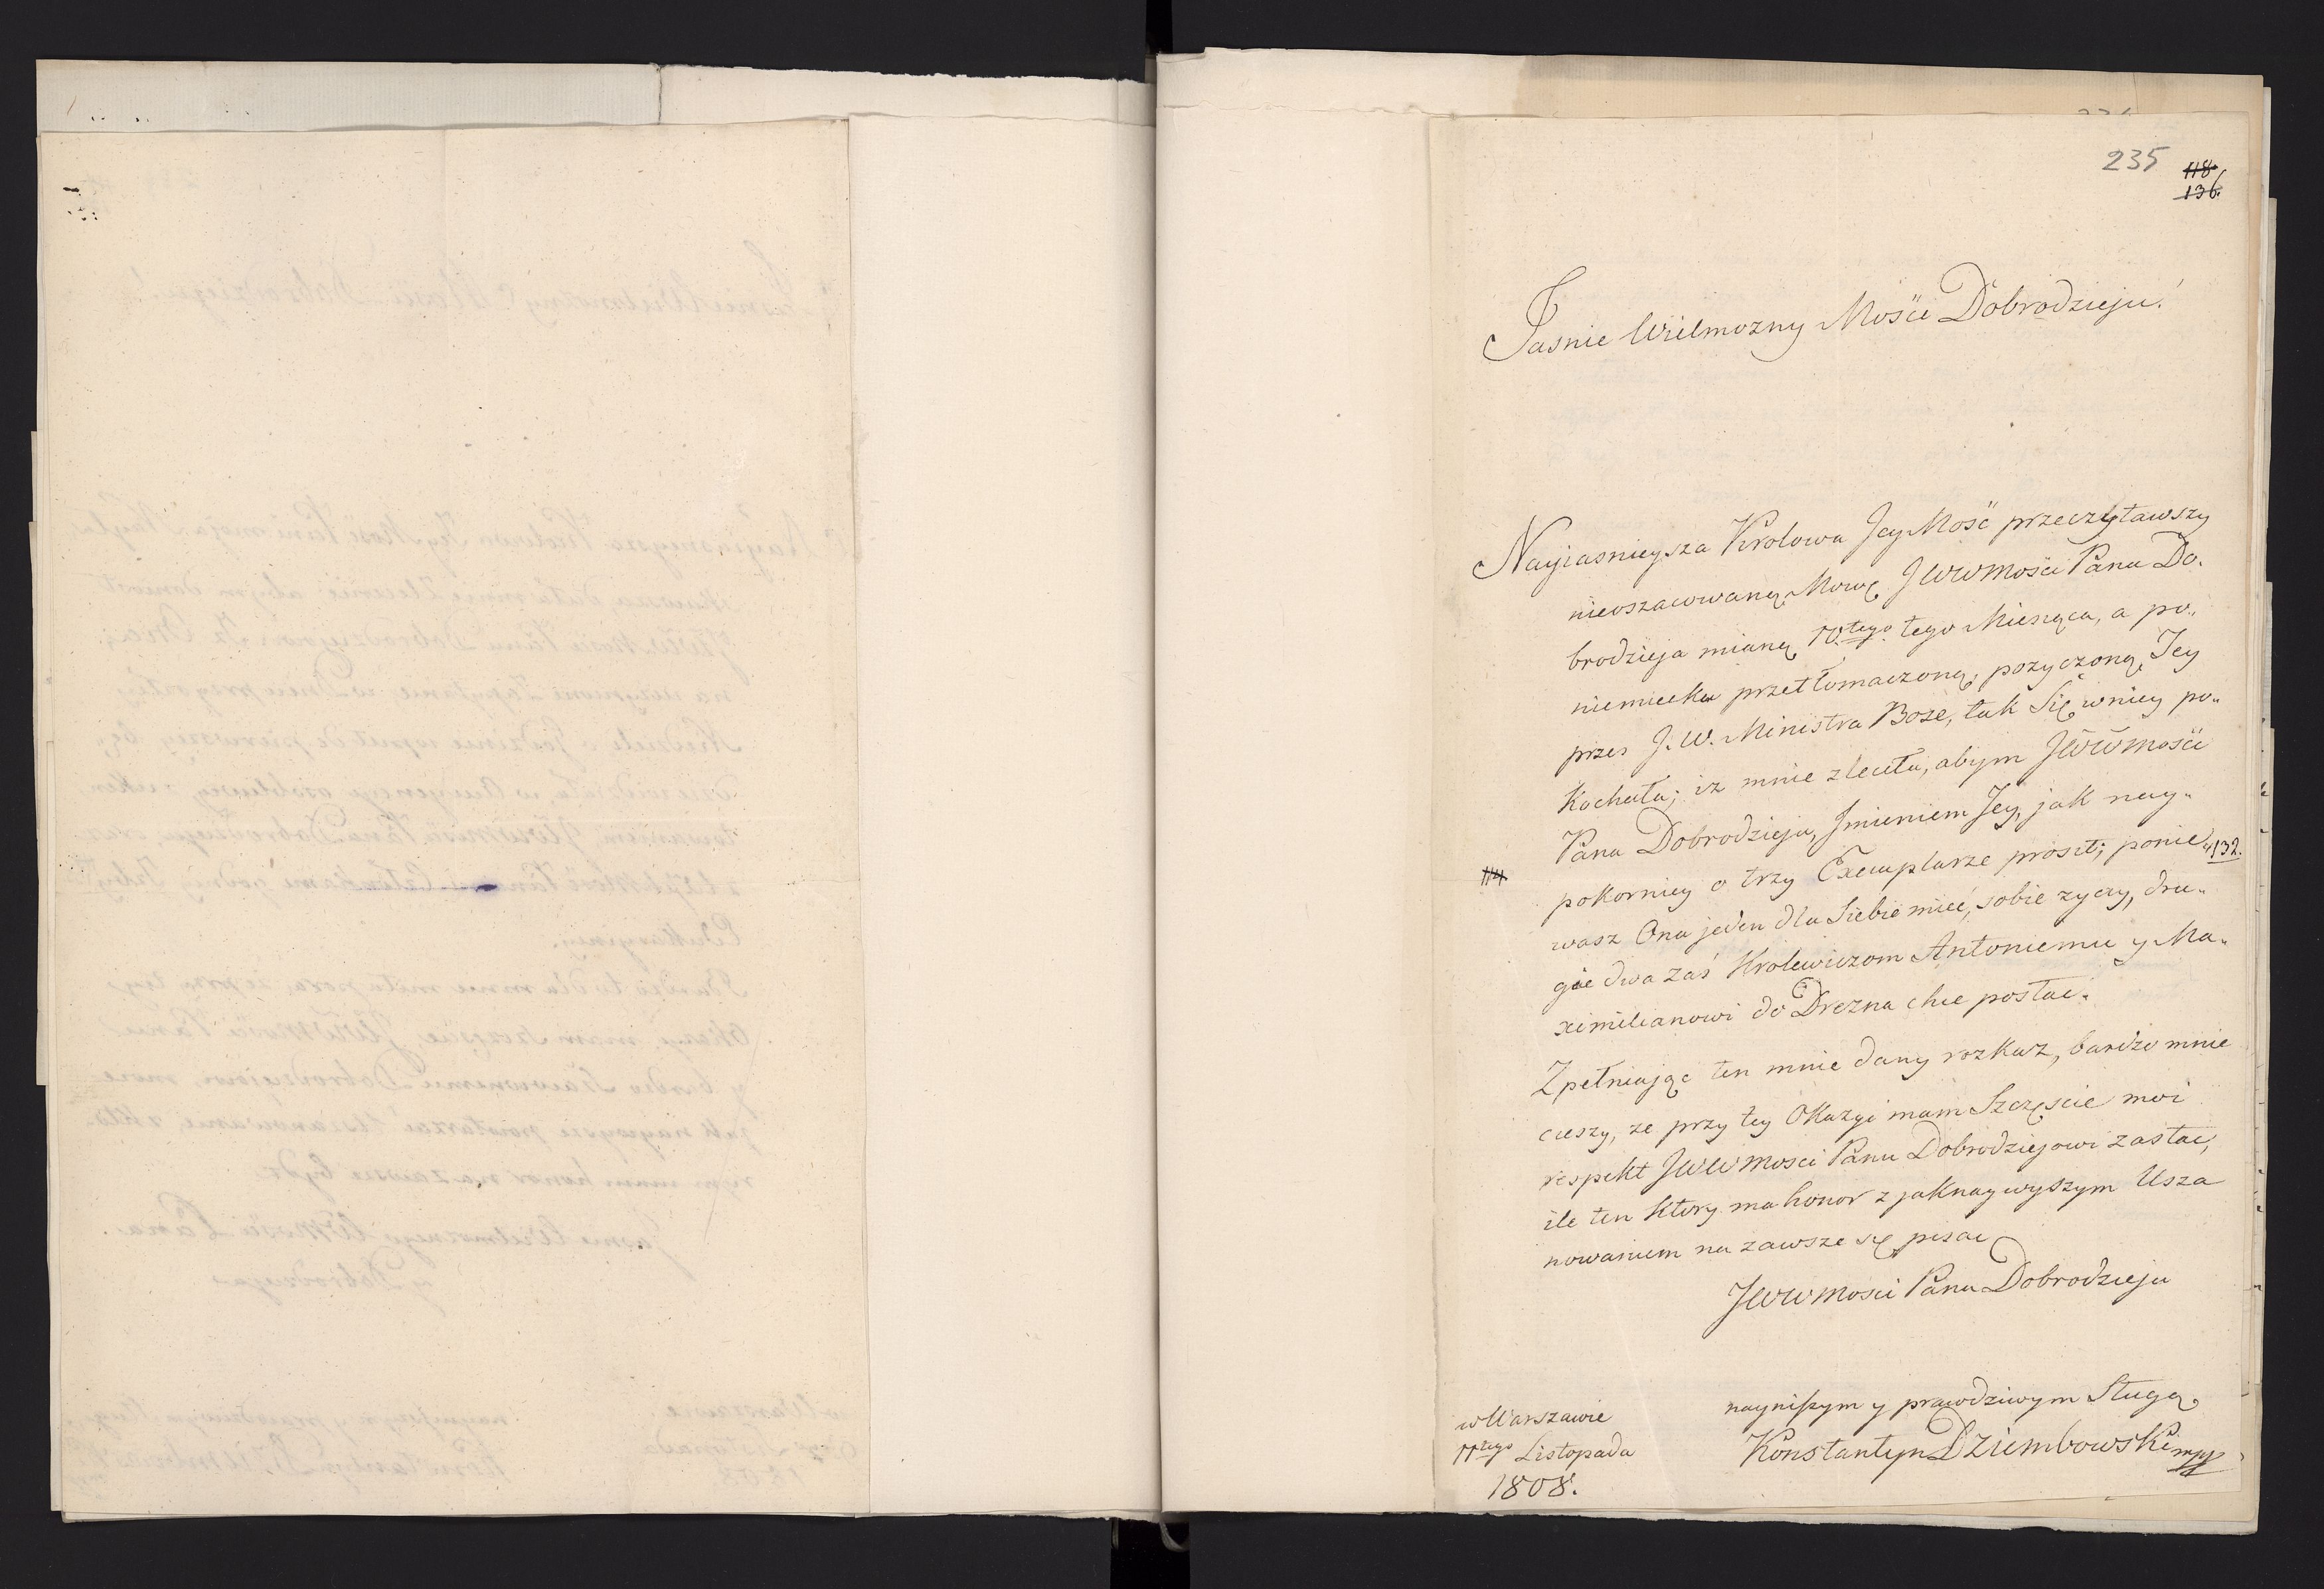 235
118
136.
Jasnie Wielmozny Mości Dobrodzieju!
Nayiasnieysza Krolowa Jey Mość przeczytawszy
nieoszacowaną Mowę JWWMości Pana Do„
brodzieja mianą 10tego tego Miesąca, a po„
niemiecku przetłomaczoną, pozyczoną Jey
przes J. W. Ministra Bose, tak Się wniey po„
Kochała; iz mnie zleciła, abym JWWMości
Pana Dobrodzieja, Jmieniem Jey, jak nay„
pokorniey o trzy Exemplarze prosił; ponie„
114
132.
wasz Ona jeden dla Siebie mieć, sobie zyczy, dru„
gie dwa zaś Krolewiczom Antoniemu y Ma„
ximilianowi do Drezna chce posłać.
Zpełniając ten mnie dany rozkaz, bardzo mnie
cieszy, ze przy tey Okazyi mam Szczęscie moi
respekt JWWMosci Panu Dobrodziejowi zasłac,
ile ten ktory ma honor z jaknaywyszym Usza
nowaniem na zawsze się pisac
JWWMosci Pana Dobrodzieja
nayniszym y prawdziwym Sługą
Konstantyn Dziembowski mpp
w Warszawie
11tego Listopada
1808.